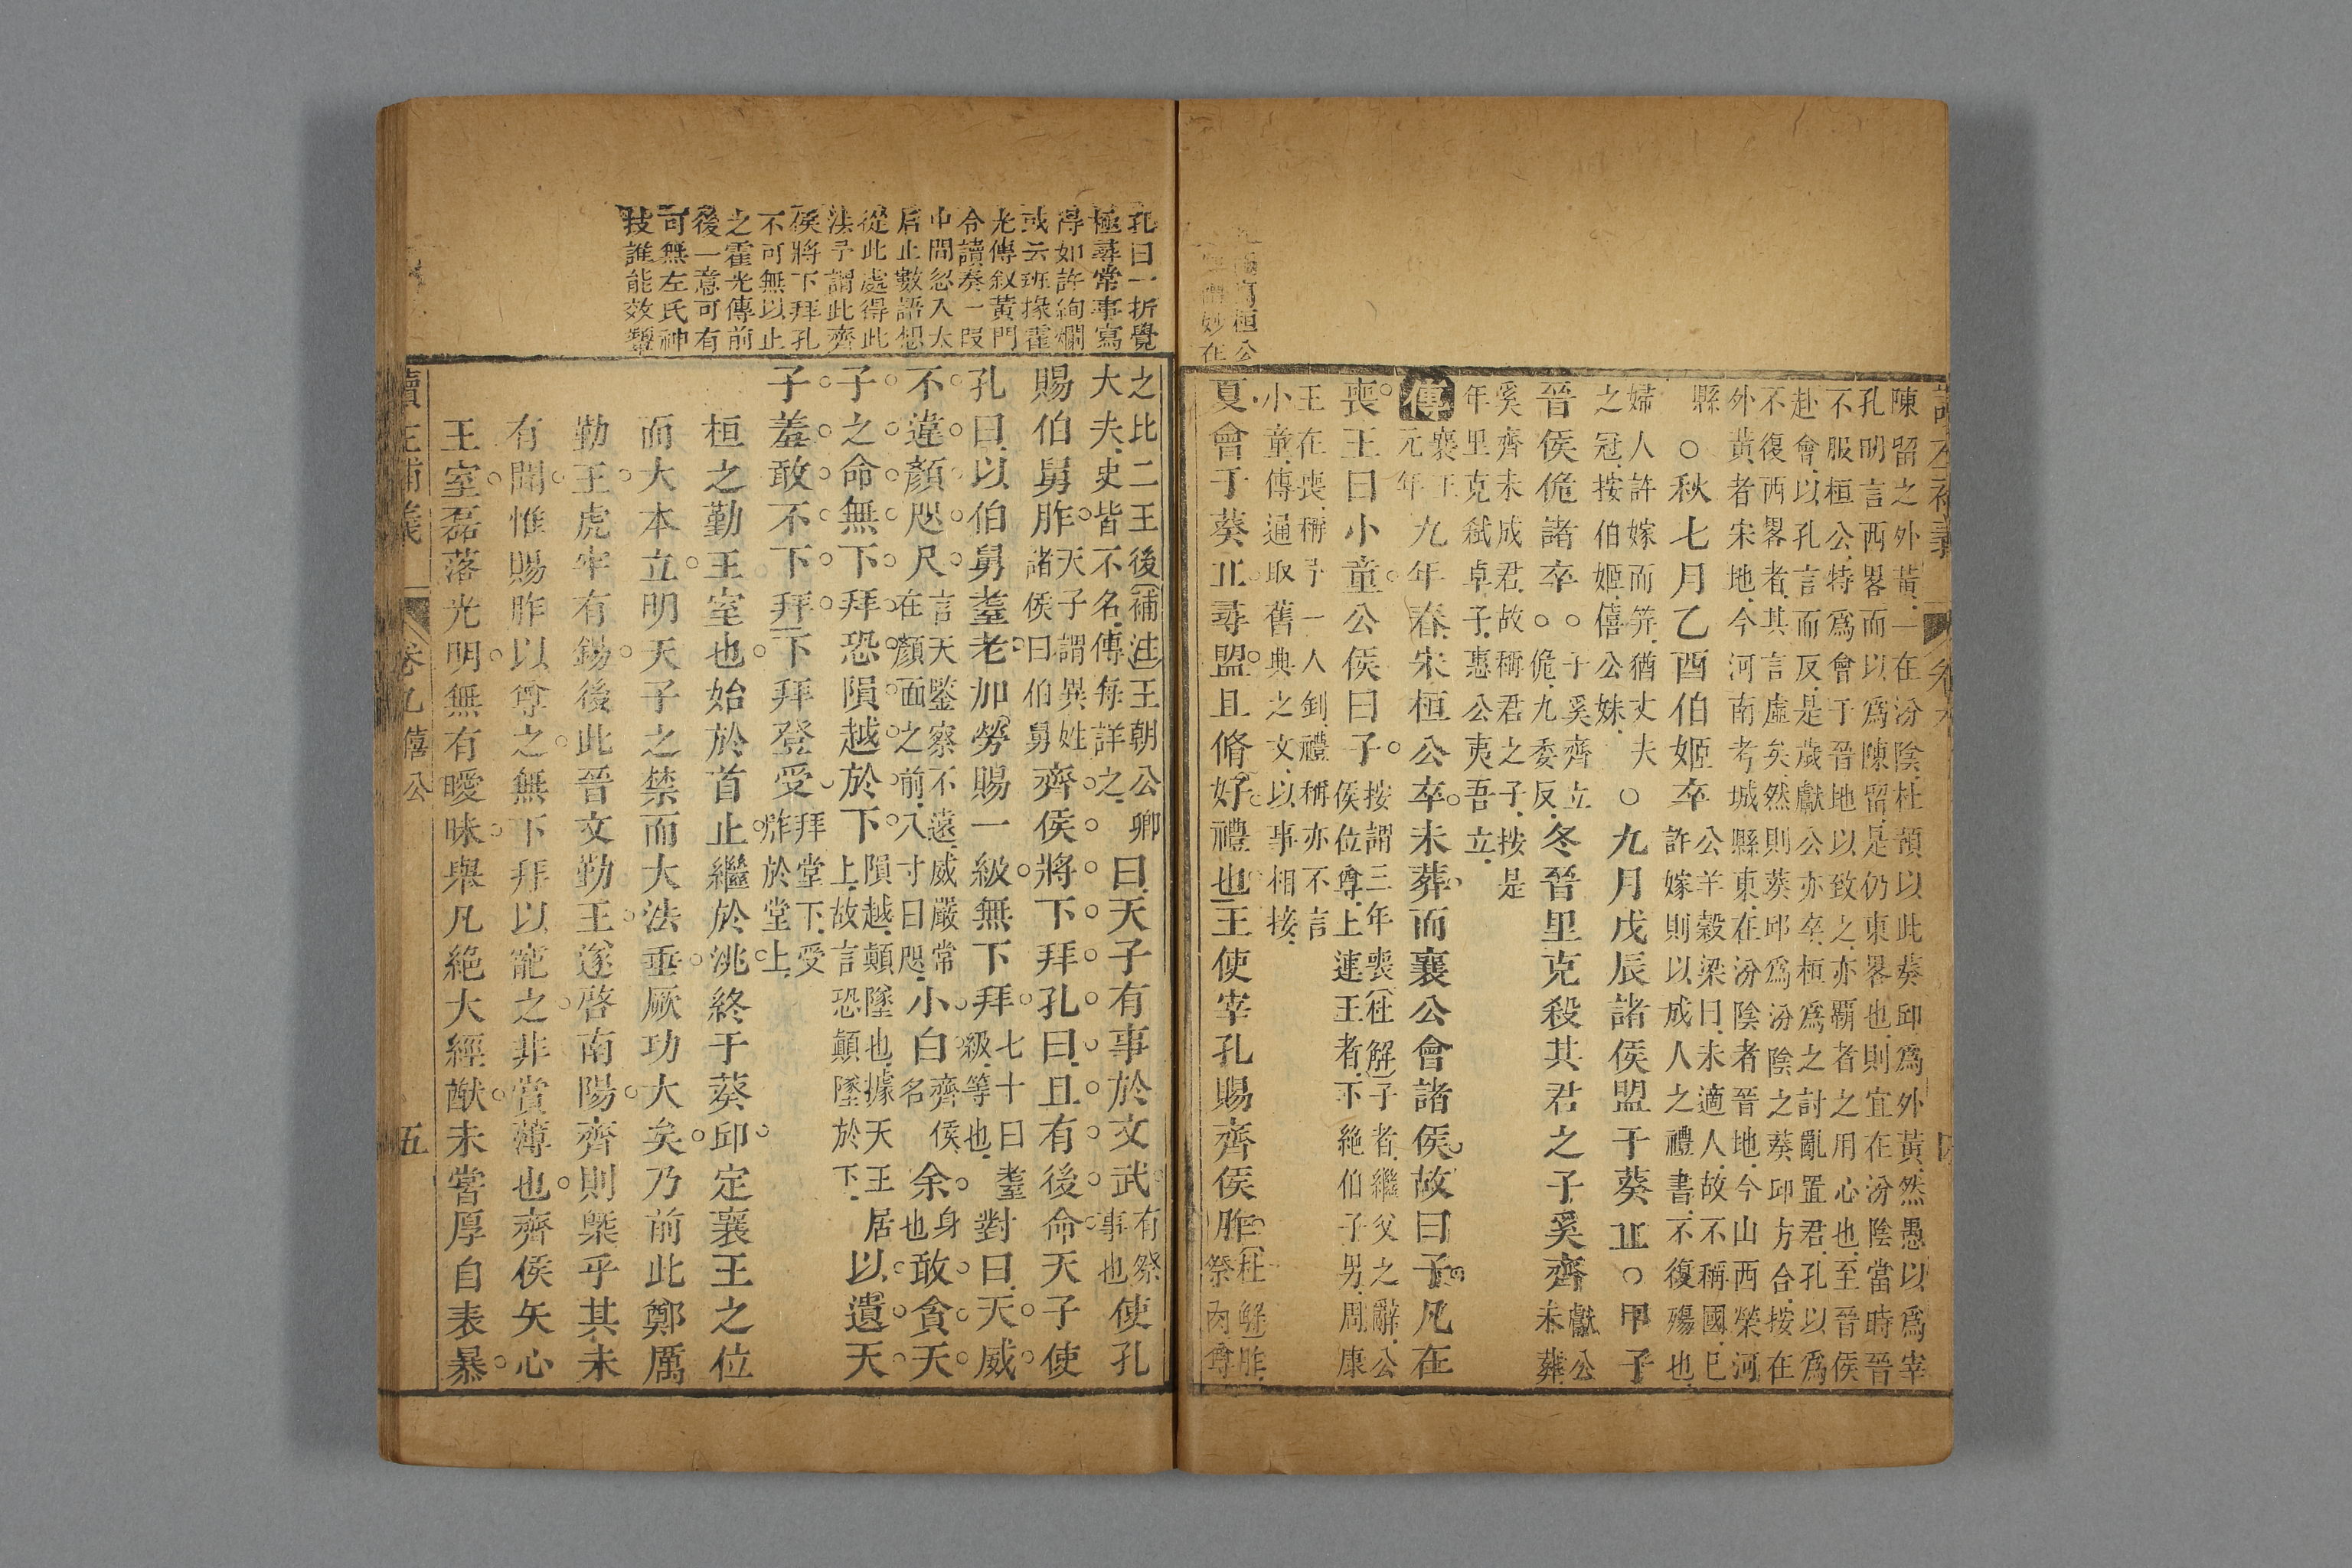 讀左補義
卷九
陳留之外黃一在汾陰杜預以此葵邱爲外黃然愚以爲宰
孔明言西畧而以爲陳留是仍東畧也則宜在汾陰當時晉
不服桓公特爲會于晉地以致之亦覇者之用心也至晉侯
赴會以孔言而反是歲獻公亦卒桓爲之討亂置君孔以爲
不復西畧者其言虛矣然則葵邱爲汾陰之葵邱方合按在
外黃者宋地今河南考城縣東在汾陰者晉地今山西榮河
縣
○秋七月乙酉伯姬卒
公羊穀梁曰未適人故不稱國已
許嫁則以成人之禮書不復殤也
婦人許嫁而笄猶丈夫
之冠按伯姬僖公妹
○九月戊辰諸侯盟于葵丘○甲子
晉侯佹諸卒○
○子奚齊立
佹九委反
冬晉里克殺其君之子奚齊
獻公
未葬
奚齊未成君故稱君之子按是
年里克弑卓子惠公夷吾立
傳
襄王
元年
九年春宋桓公卒未葬而襄公會諸侯故曰子凡在
喪王曰小童公侯曰子
按謂三年喪杜解子者繼父之辭公
侯位尊上連王者下絶伯子男周康
王在喪稱予一人釗禮稱亦不言
小童傳通取舊典之文以事相接
夏會于葵丘尋盟且脩好禮也王使宰孔賜齊侯胙
杜解胙
祭肉尊
寫桓公
妙在
孔曰一折覺
極尋常事寫
得如許絢爛
或云班掾霍
光傳叙黃門
令讀奏一段
中間忽入太
后止數語想
從此處得此
法予謂此齊
侯將下拜孔
不可無以止
之霍光傳前
後一意可有
可無左氏神
技誰能效顰
之比二王後補注王朝公卿
大夫史皆不名傳每詳之
曰天子有事於文武
有祭
事也
使孔
賜伯舅胙
天子謂異姓
諸侯曰伯舅
齊侯將下拜孔曰且有後命天子使
孔曰以伯舅耋老加勞賜一級無下拜
七十曰耋
級等也
對曰天威
不違顏咫尺
言天鑒察不遠威嚴常
在顏面之前八寸曰咫
小白
齊侯
名
余
身
也
敢貪天
子之命無下拜恐隕越於下
隕越顛墜也據天王居
上故言恐顛墜於下
以遺天
子羞敢不下拜下拜登受
拜堂下受
胙於堂上
桓之勤王室也始於首止繼於洮終于葵邱定襄王之位
而大本立明天子之禁而大法垂厥功大矣乃前此鄭厲
勤王虎牢有錫後此晉文勤王遂啓南陽齊則槩乎其未
有聞惟賜胙以尊之無下拜以寵之非賞薄也齊侯矢心
王室磊落光明無有曖昧舉凡絕大經猷未嘗厚自表暴
讀左補義
卷九
僖公
五